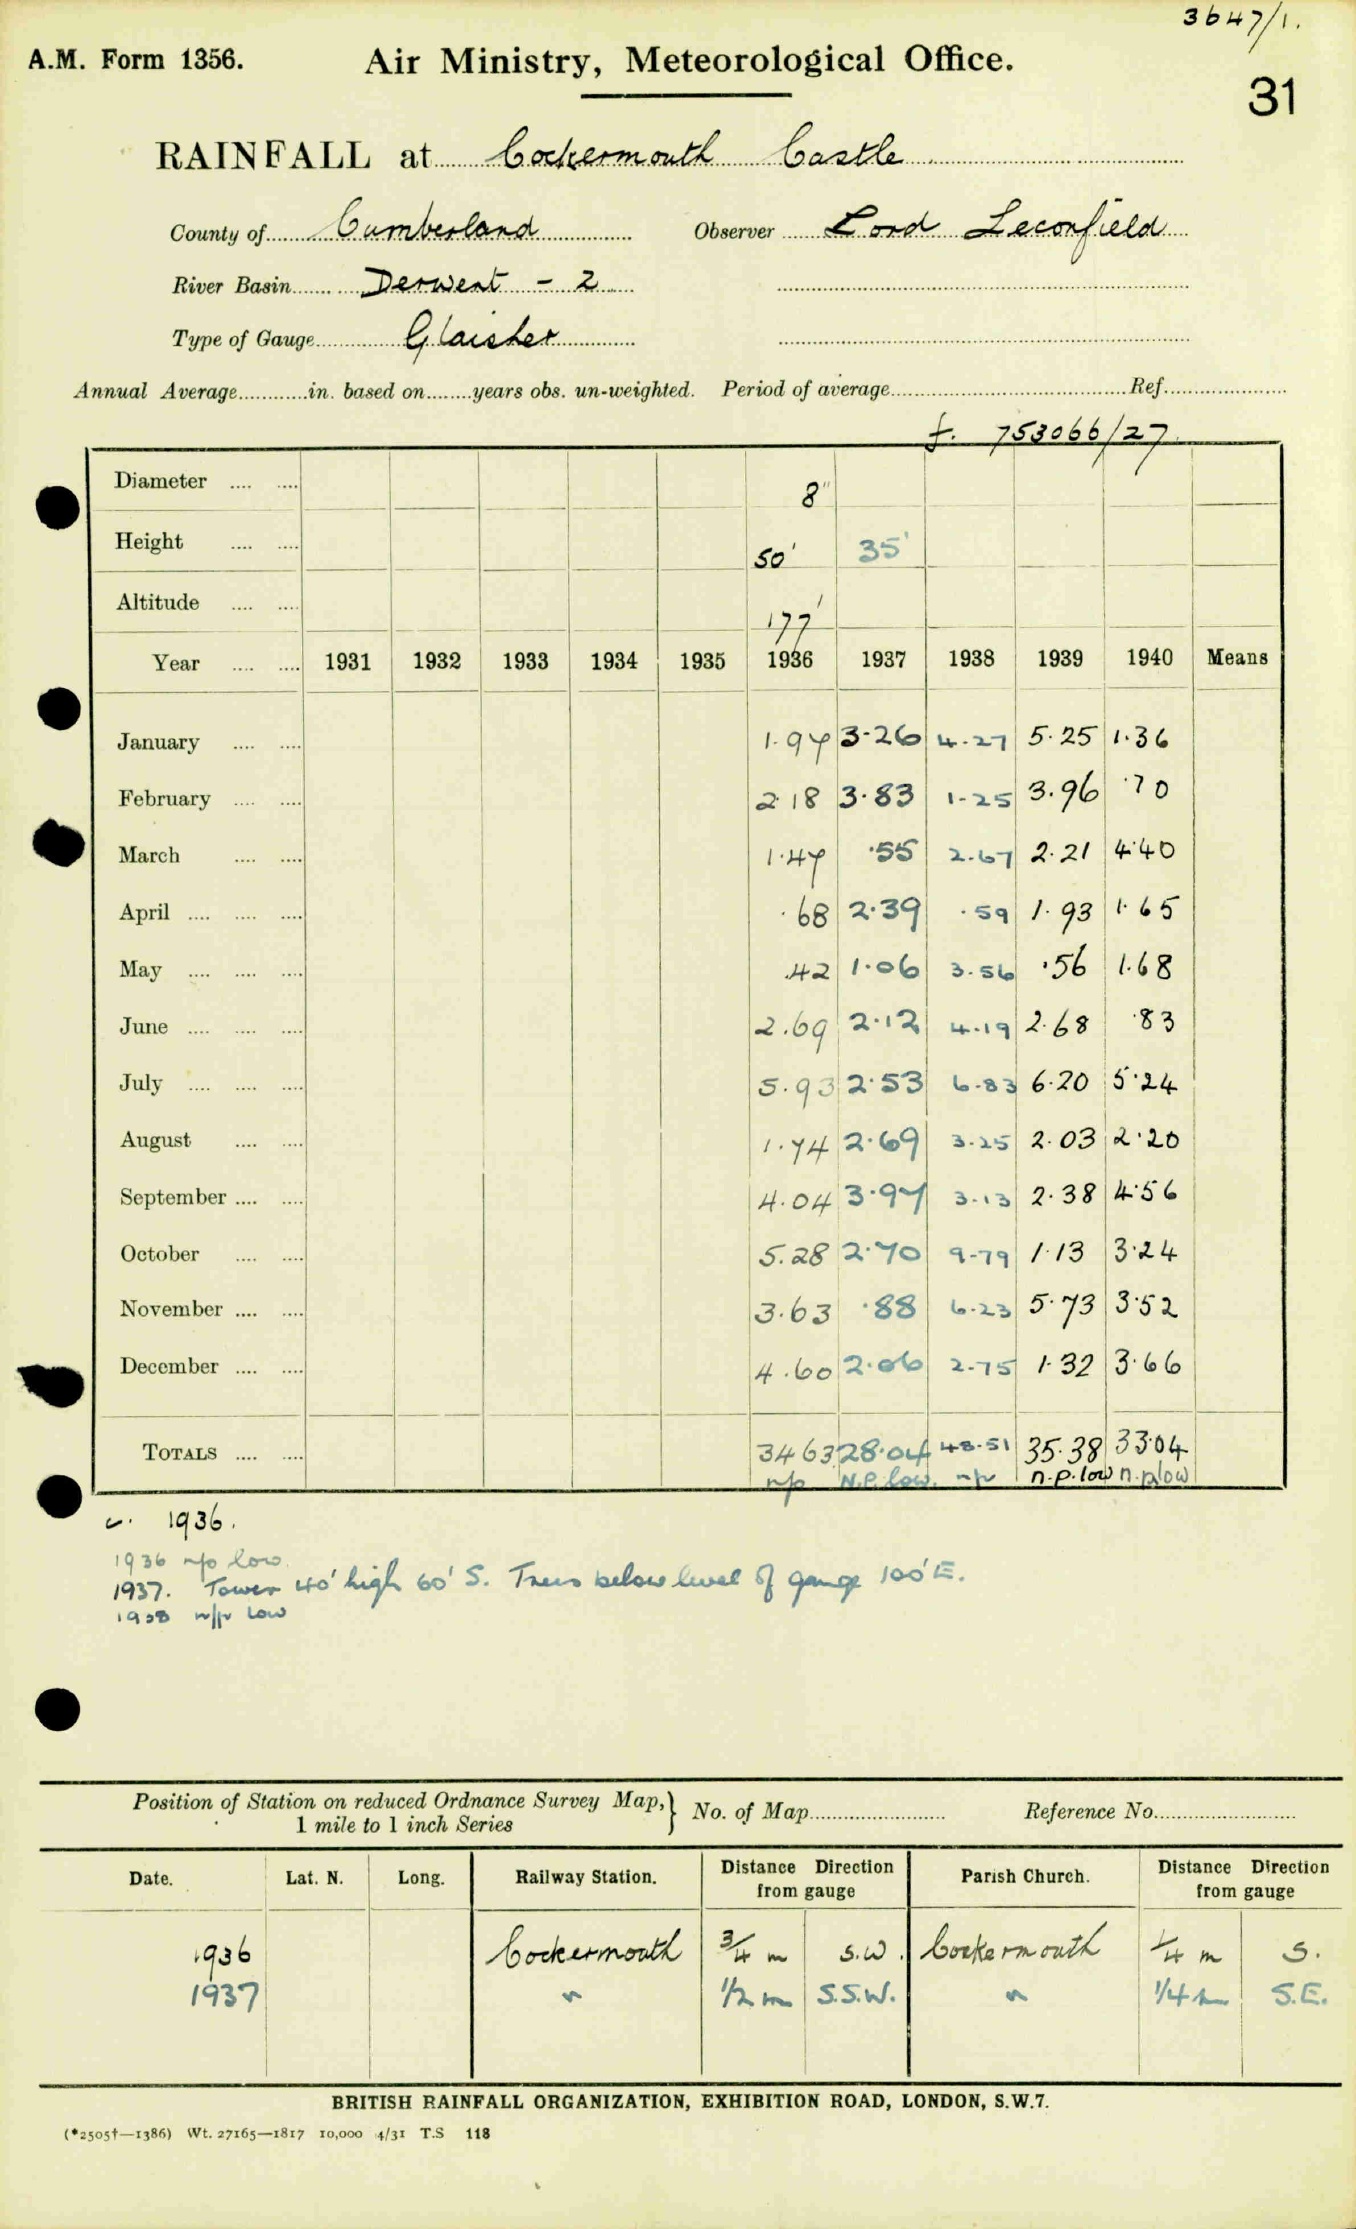 3647/1.
A.M. Form 1356. Air Ministry, Meteorological Office.
31
RAINFALL at Cockermouth Castle
County of Cumberland Observer Lord Leconfield
River Basin Derwent - 2
Type of Gauge Glaisher
Annual Average in. based on years obs. un-weighted. Period of average Ref.
f. 753066/27
Diameter 8"
Height 50' 35'
Altitude 177'
Year 1931 1932 1933 1934 1935 1936 1937 1938 1939 1940 Means
January 1.97 3.26 4.27 5.25 1.36
February 2.18 3.83 1.25 3.96 .70
March 1.47 .55 2.67 2.21 4.40
April .68 2.39 .59 1.93 1.65
May .42 1.06 3.56 .56 1.68
June 2.69 2.12 4.19 2.68 .83
July 5.93 2.53 6.83 6.20 5.24
August 1.74 2.69 3.25 2.03 2.20
September 4.04 3.97 3.13 2.38 4.56
October 5.28 2.70 9.79 1.13 3.24
November 3.63 .88 6.23 5.73 3.52
December 4.60 2.06 2.75 1.32 3.66
TOTALS 34.63 28.04 48.51 35.38 33.04
n/p N.P. low. n/p n.p. low n.p low
1936.
1936 n/p low.
1937. Tower 40' high 60' S. Trees below level of gauge 100' E.
1938 n/p low
Position of Station on reduced Ordnance Survey Map, } No. of Map Reference No.
1 mile to 1 inch Series
Date. Lat. N. Long. Railway Station. Distance Direction from gauge Parish Church. Distance Direction from gauge
1936 Cockermouth 3/4 m S.W. Cockermouth 1/4 m S.
1937 " 1/2 m S.S.W. " 1/4 m S.E.
BRITISH RAINFALL ORGANIZATION, EXHIBITION ROAD, LONDON, S.W.7.
(*2505†—1386) Wt. 27165—1817 10,000 4/31 T.S 118